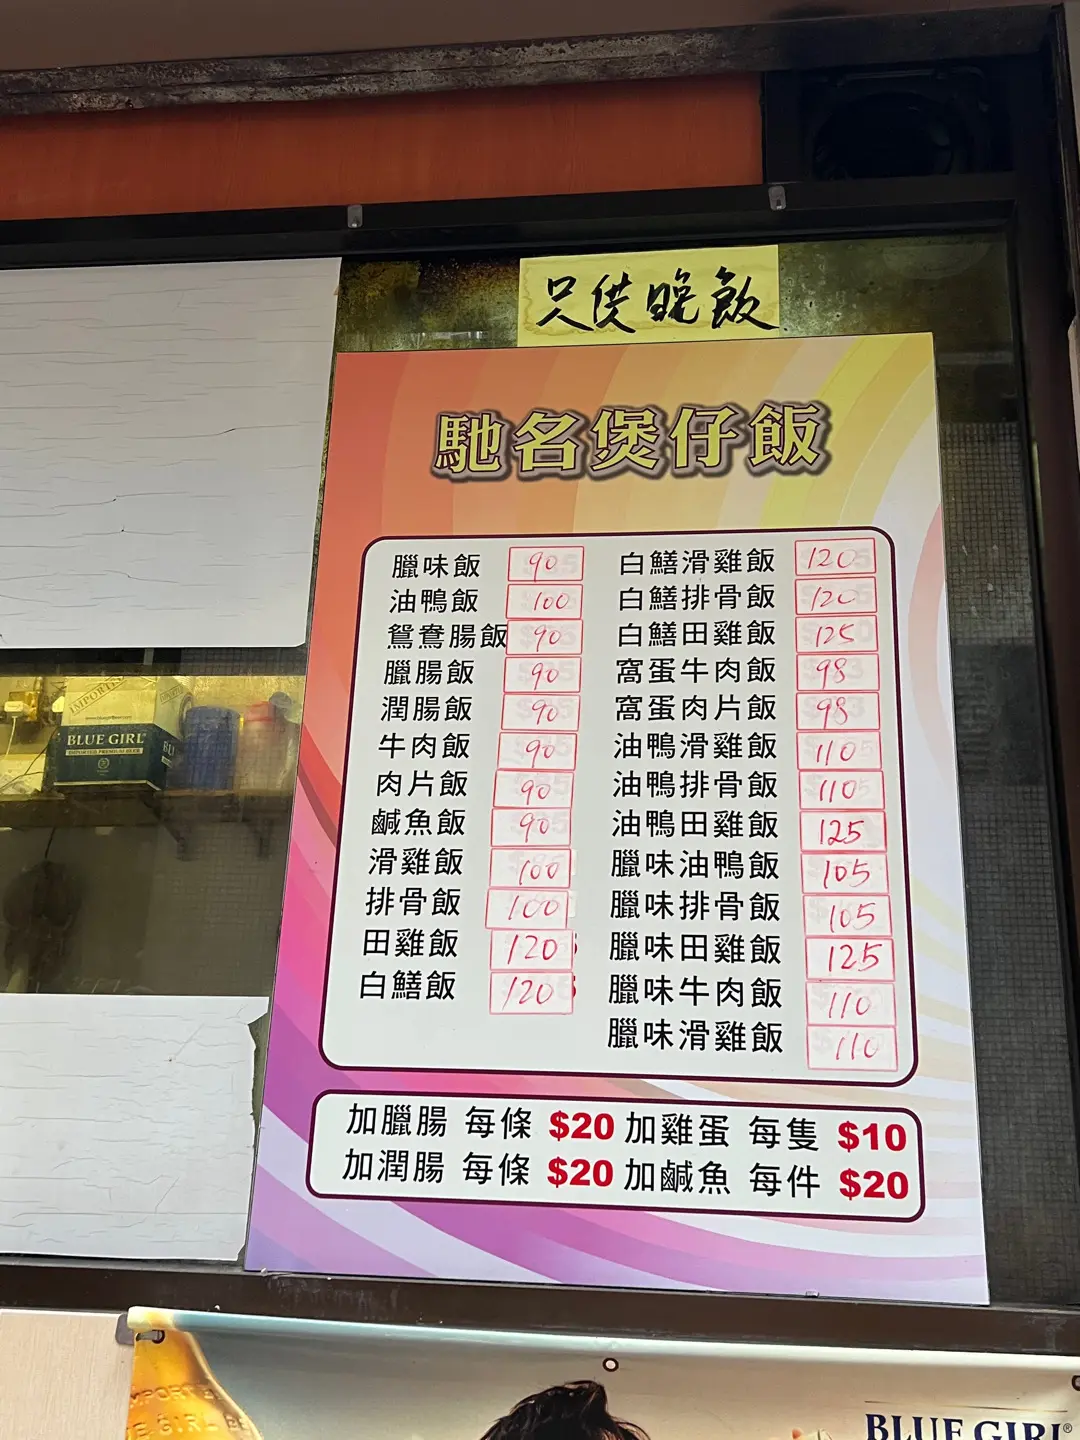 只供晚飯
馳名煲仔飯
臘味飯 90
油鴨飯 100
鴛鴦腸飯 90
臘腸飯 90
潤腸飯 90
牛肉飯 90
肉片飯 90
鹹魚飯 90
滑雞飯 100
排骨飯 100
田雞飯 120
白鱔飯 120
白鱔滑雞飯 120
白鱔排骨飯 120
白鱔田雞飯 125
窩蛋牛肉飯 98
窩蛋肉片飯 98
油鴨滑雞飯 110
油鴨排骨飯 110
油鴨田雞飯 125
臘味油鴨飯 105
臘味排骨飯 105
臘味田雞飯 125
臘味牛肉飯 110
臘味滑雞飯 110
加臘腸 每條 $20 加雞蛋 每隻 $10
加潤腸 每條 $20 加鹹魚 每件 $20
IMPORTED
BLUE GIRL
IMPORTED PREMIUM BEER
BLU
BLUE GIRL®